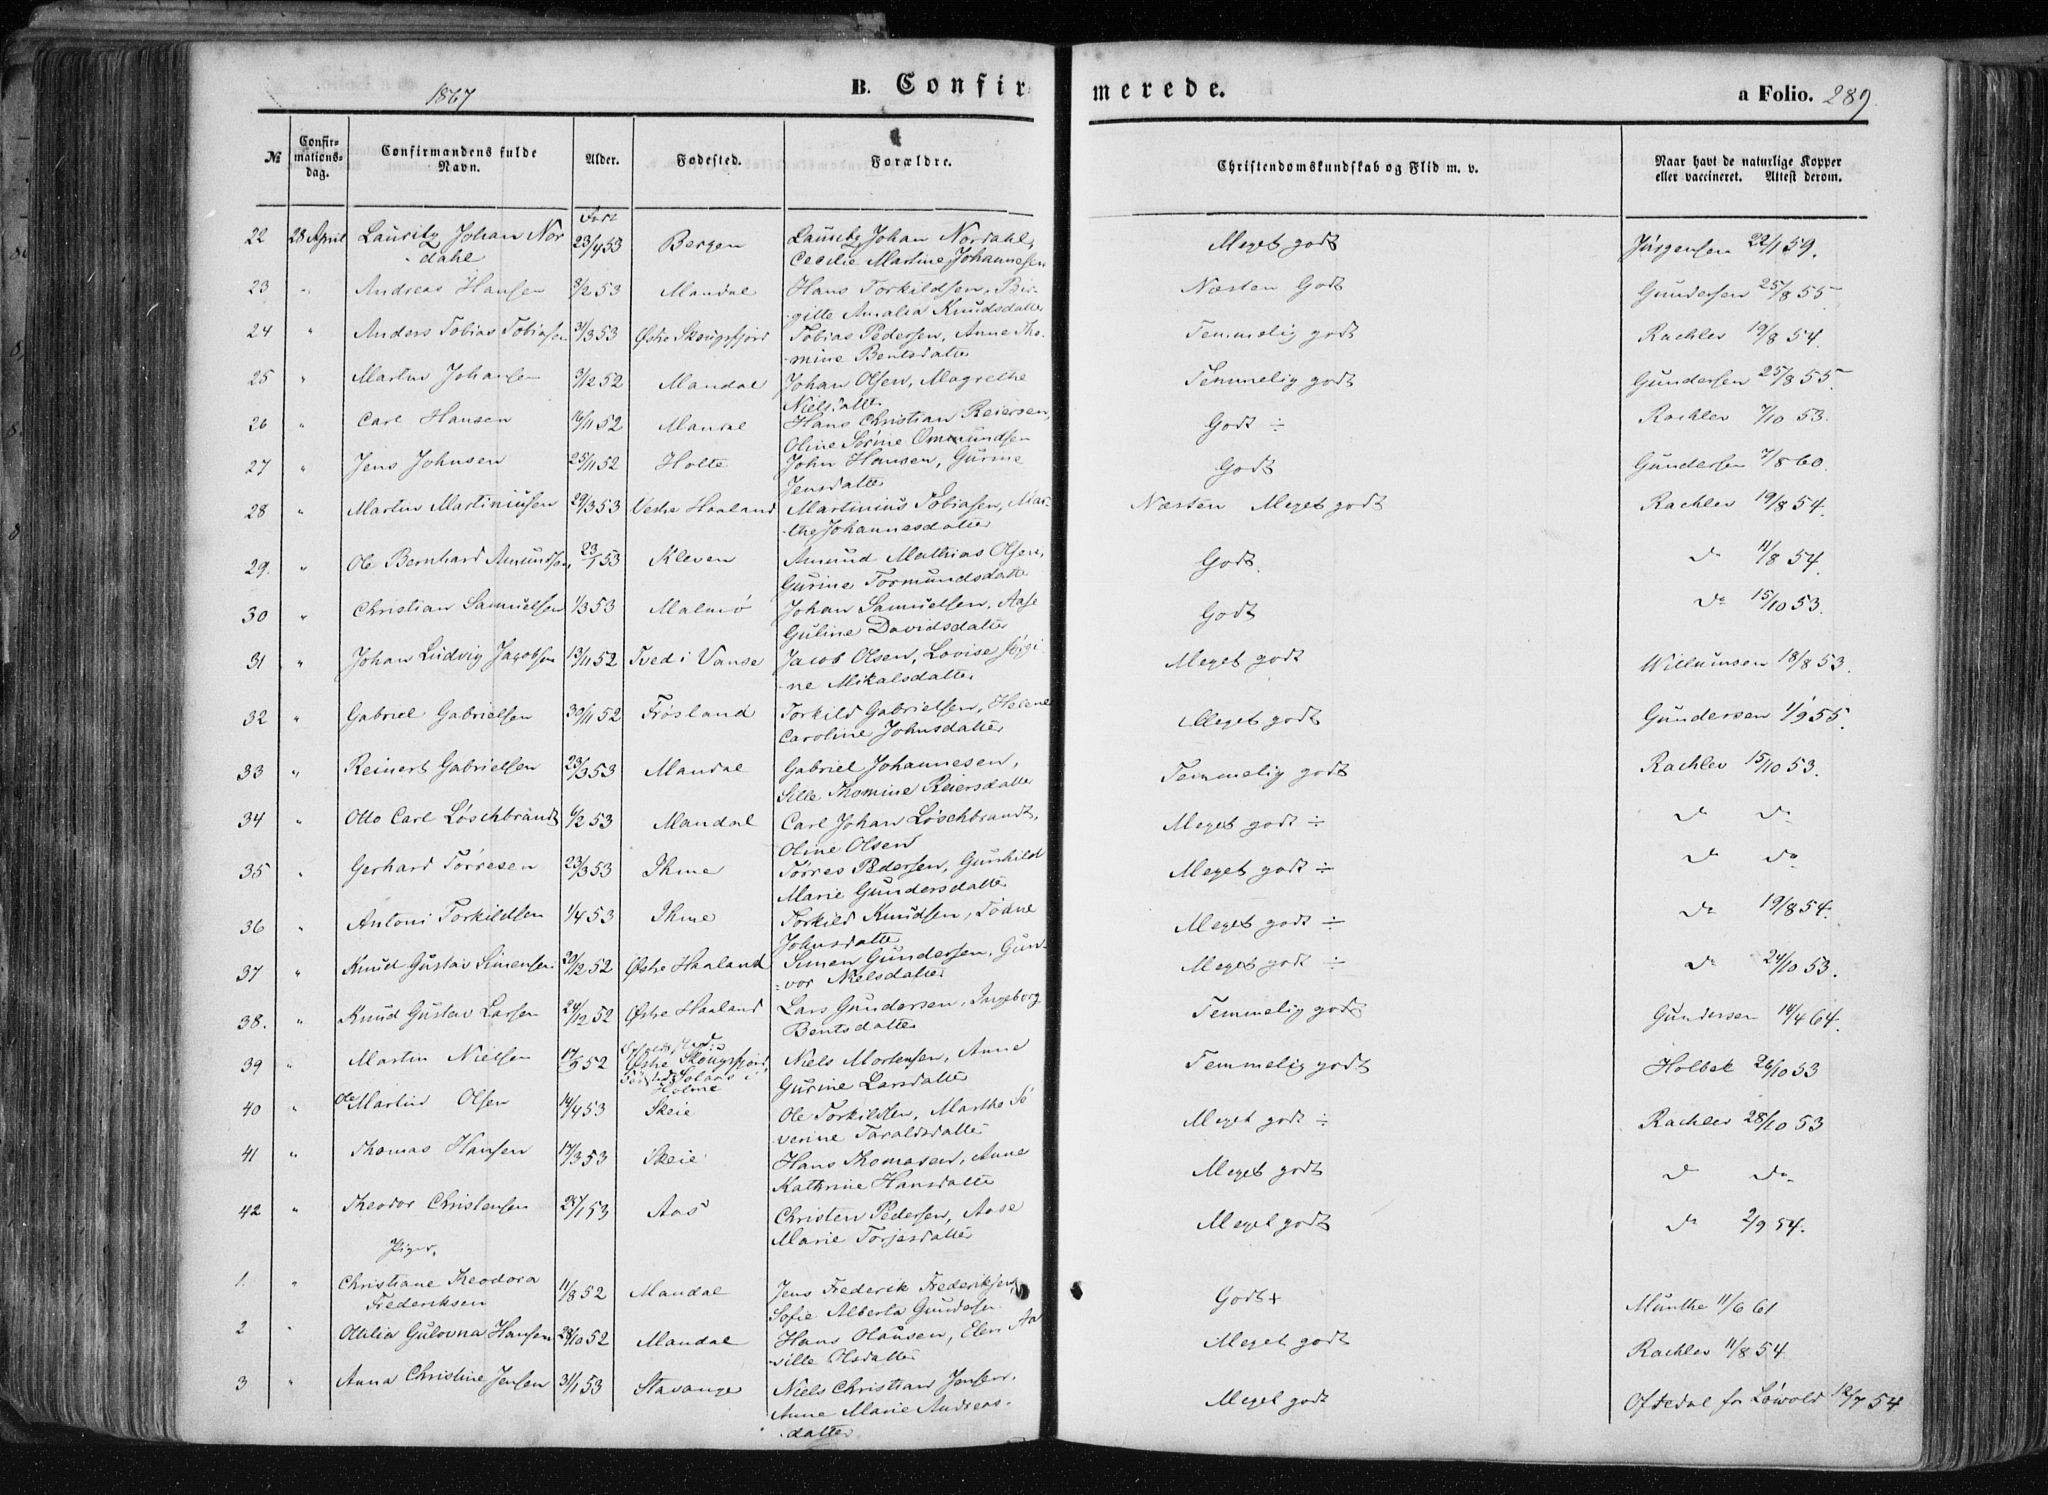 1867 B. Confirmerede. a Folio. 289.
№ Confirmationsdag. Confirmandens fulde Navn. Alder. Fødested. Forældre. Christendomskundskab og Flid m. v. Naar havt de naturlige Kopper eller vaccineret. Attest derom.
22 28 April Lauritz Johan Nor 23/4 53 Bergen Lauritz Johan Nordahl, Meget godt Jørgensen 22/1 59.
dahl Cecilie Martine Johannesen
23 " Andreas Hansen 8/2 53 Mandal Hans Torkildsen, Bir Næsten Godt Gundersen 25/8 55
gitte Amalia Knudsdatter
24 " Anders Tobias Tobiasen 31/3 53 Østre Skougsfjord Tobias Pedersen, Anne Tho- Temmelig godt Rachlev 19/8 54.
mine Bentsdatter
25 " Martin Johansen 9/12 52 Mandal Johan Olsen, Magrethe Temmelig godt Gundersen 25/8 55
Nielsdatter
26 " Carl Hansen 16/11 52 Mandal Hans Christian Reiersen, Godt ÷ Rachlev 7/10 53.
Oline Sørine Ommundsen
27 " Jens Johnsen 25/11 52 Holte John Hansen, Gurine Godt Gundersen 7/8 60.
Jensdatter
28 " Martin Martiniussen 29/3 53 Vestre Haaland Martinius Tobiasen, Mar- Næsten Meget godt Rachlev 19/8 54.
the Johannesdatter
29. " Ole Bernhard Amundsen 23/1 53 Kleven Amund Mathias Olsen, Godt. do 11/8 54.
Gurine Tormundsdatter
30 " Christian Samuelsen 1/3 53 Malmø Johan Samuelsen, Aase Godt do 15/10 53.
Guline Davidsdatter
31 " Johan Ludvig Jacobsen 13/11 52 Tved i Vanse Jacob Olsen, Lovise Meget godt Willumsen 18/8 53.
ne Mikalsdatter
32 " Gabriel Gabrielsen 30/11 52 Frøsland Torkild Gabrielsen, Helene Meget godt Gundersen 1/9 55.
Caroline Johnsdatter
33 " Reinert Gabrielsen 23/3 53 Mandal Gabriel Johannesen, Temmelig godt Rachlev 15/10 53.
Sille Thomine Reiersdatter
34 " Otto Carl Løschbrandt 6/2 53 Mandal Carl Johan Løschbrandt, Meget godt ÷ do do
Oline Olsen
35 " Gerhard Tørresen 23/3 53 Ihme Tørres Pedersen, Gunhild Meget godt ÷ do do
Marie Gundersdatter
36 " Antoni Torkildsen 1/4 53 Ihme Torkild Knudsen, Tødne Meget godt ÷ do 19/8 54.
Johnsdatter
37 " Knud Gustav Simensen 20/12 52 Østre Haaland Simen Gundersen, Gun- Meget godt ÷ do 24/10 53.
vor Nielsdatter
38. " Knud Gustav Larsen 24/12 52 Østre Haaland Lars Gundersen, Ingeborg Temmelig godt Gundersen 14/4 64.
Bentsdatter
39 " Martin Nielsen 17/9 52 Østre Skougsfjord, Niels Mortensen, Anne Temmelig godt Holbek 26/10 53
Holme Gurine Larsdatter
40 " Ole Martin Olsen 14/4 53 Skeie Ole Torkildsen, Marthe Se Meget godt ÷ Rachlev 28/10 53
verine Taraldsdatter
41 " Thomas Hansen 17/3 53 Skeie Hans Thomasen, Anne Meget godt do do
Kathrine Hansdatter
42 " Theodor Christensen 25/1 53 Aas Christen Pedersen, Aase Meget godt do 2/9 54.
Marie Torjesdatter
Piger.
1. " Christiane Theodora 11/8 52 Mandal Jens Frederik Frederiksen, Godt + Munthe 11/6 61
Frederiksen Sofie Alberta Gundersen
2 " Ottilia Gulovna Hansen 28/10 52 Mandal Hans Olausen, Elen Aa Meget godt Rachlev 11/8 54.
ville Olsdatter
3 " Anna Christine Jensen 31/1 53 Stavanger Niels Christian Jensen, Meget godt Oftedal for Løwold 12/7 54
Anne Marie Andreas-
datter